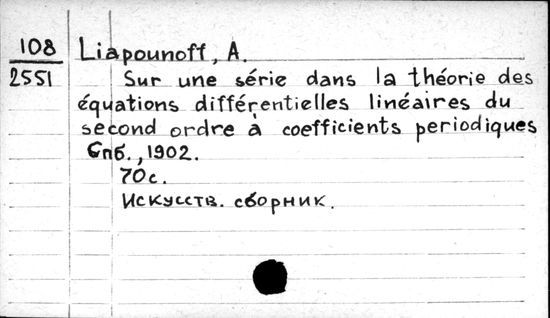 108
2551
Liapounoff, A.
Sur une série dans la théorie des
équations différentielles linéaires du
second ordre à coefficients periodiques
Спб., 1902.
70 с.
Искусств. сборник.